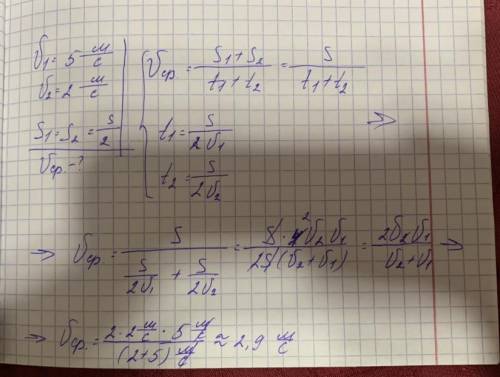 υ₁ = 5 м/с
υ₂ = 2 м/с
S₁ = S₂ = S/2
υср. - ?
υср = (S₁ + S₂)/(t₁ + t₂) = S/(t₁ + t₂)
t₁ = S/(2υ₁)
t₂ = S/(2υ₂)
⇒
⇒ υср. = S/(S/(2υ₁) + S/(2υ₂)) = (S · 4² υ₂ υ₁)/(2S(υ₂ + υ₁)) = (2υ₂υ₁)/(υ₂ + υ₁) ⇒
⇒ υср. = (2 · 2 м/с · 5 м/с)/((2 + 5) м/с) ≈ 2,9 м/с